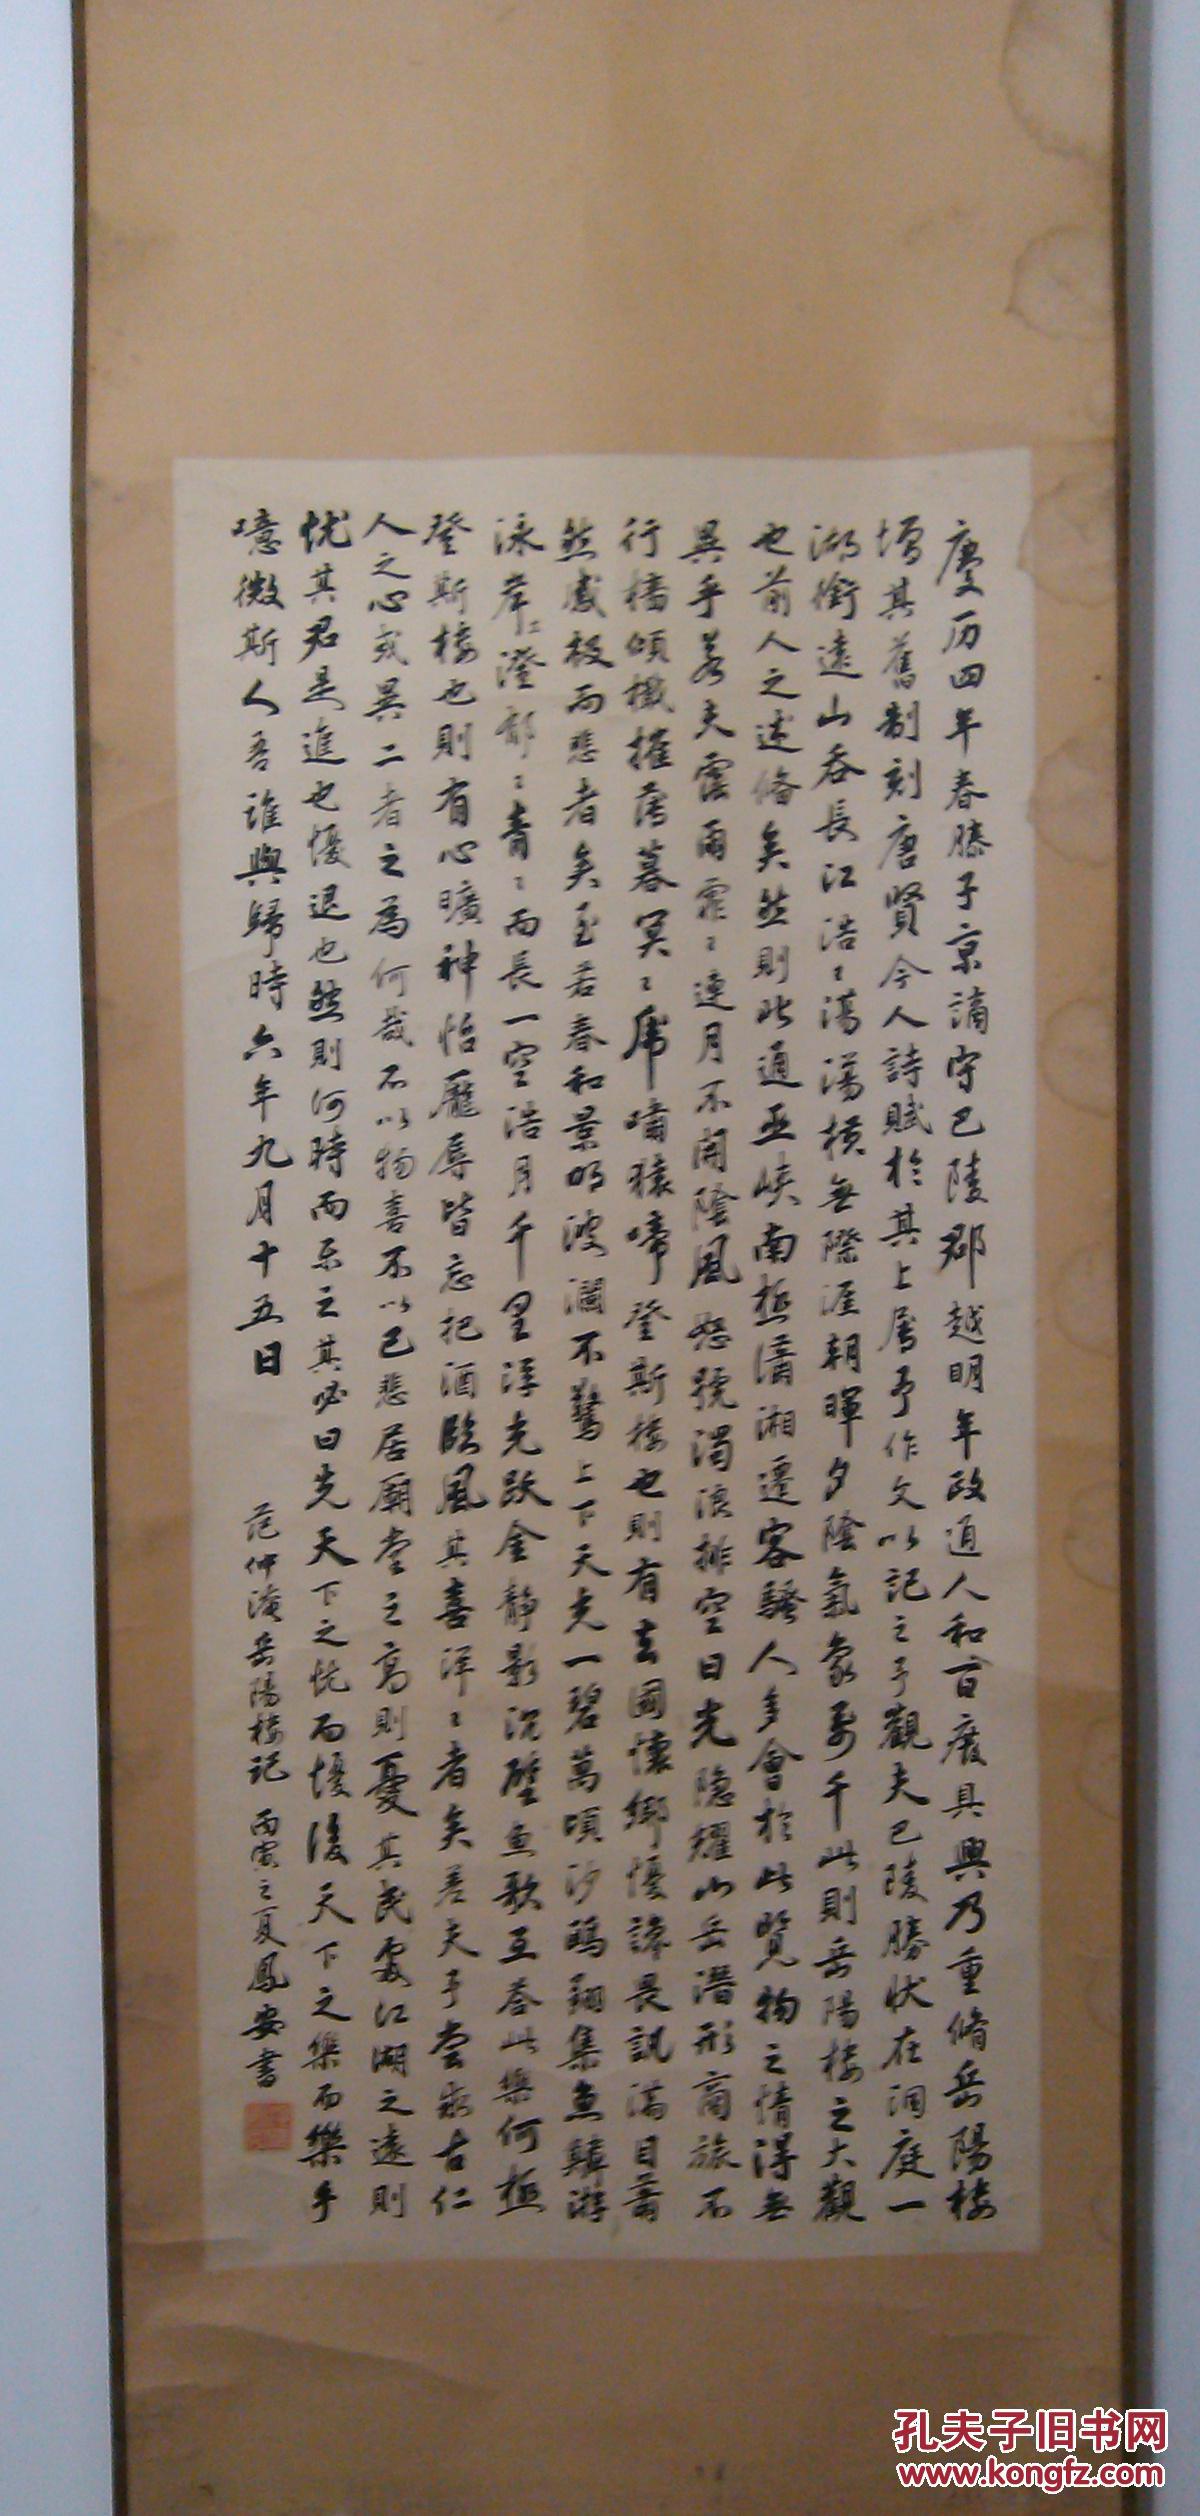 慶历四年春滕子京謫守巴陵郡越明年政通人和百廢具興乃重脩岳陽楼
增其舊制刻唐賢今人詩賦於其上屬予作文以記之予觀夫巴陵勝状在洞庭一
湖銜遠山吞長江浩〻湯湯横無際涯朝暉夕陰氣象万千此則岳陽楼之大觀
也前人之述俻矣然則此通巫峽南極瀟湘遷客騷人多會於此覽物之情得無
異乎若夫霪雨霏〻連月不開陰風怒號濁浪排空日光隐耀山岳潛形商旅不
行檣傾檝摧薄暮冥〻虎嘯猿啼登斯楼也則有去國懷鄉懮讒畏訊满目蕭
然感极而悲者矣至若春和景明波瀾不驚上下天光一碧萬頃沙鷗翔集魚鱗游
泳岸芷澄郁〻青〻而長一空浩月千里浮光跃金静影沉璧魚歌互答此樂何極
登斯楼也則有心曠神怡寵辱皆忘把酒臨風其喜洋〻者矣差夫予嘗求古仁
人之心或異二者之為何哉不以物喜不以己悲居廟堂之高則憂其民處江湖之遠則
忧其君是進也懮退也然則何時而乐之其必曰先天下之忧而懮後天下之樂而樂乎
噫微斯人吾谁與歸時六年九月十五日
范仲淹岳陽楼记 丙寅之夏鳳安書
孔夫子旧书网
www.kongfz.com